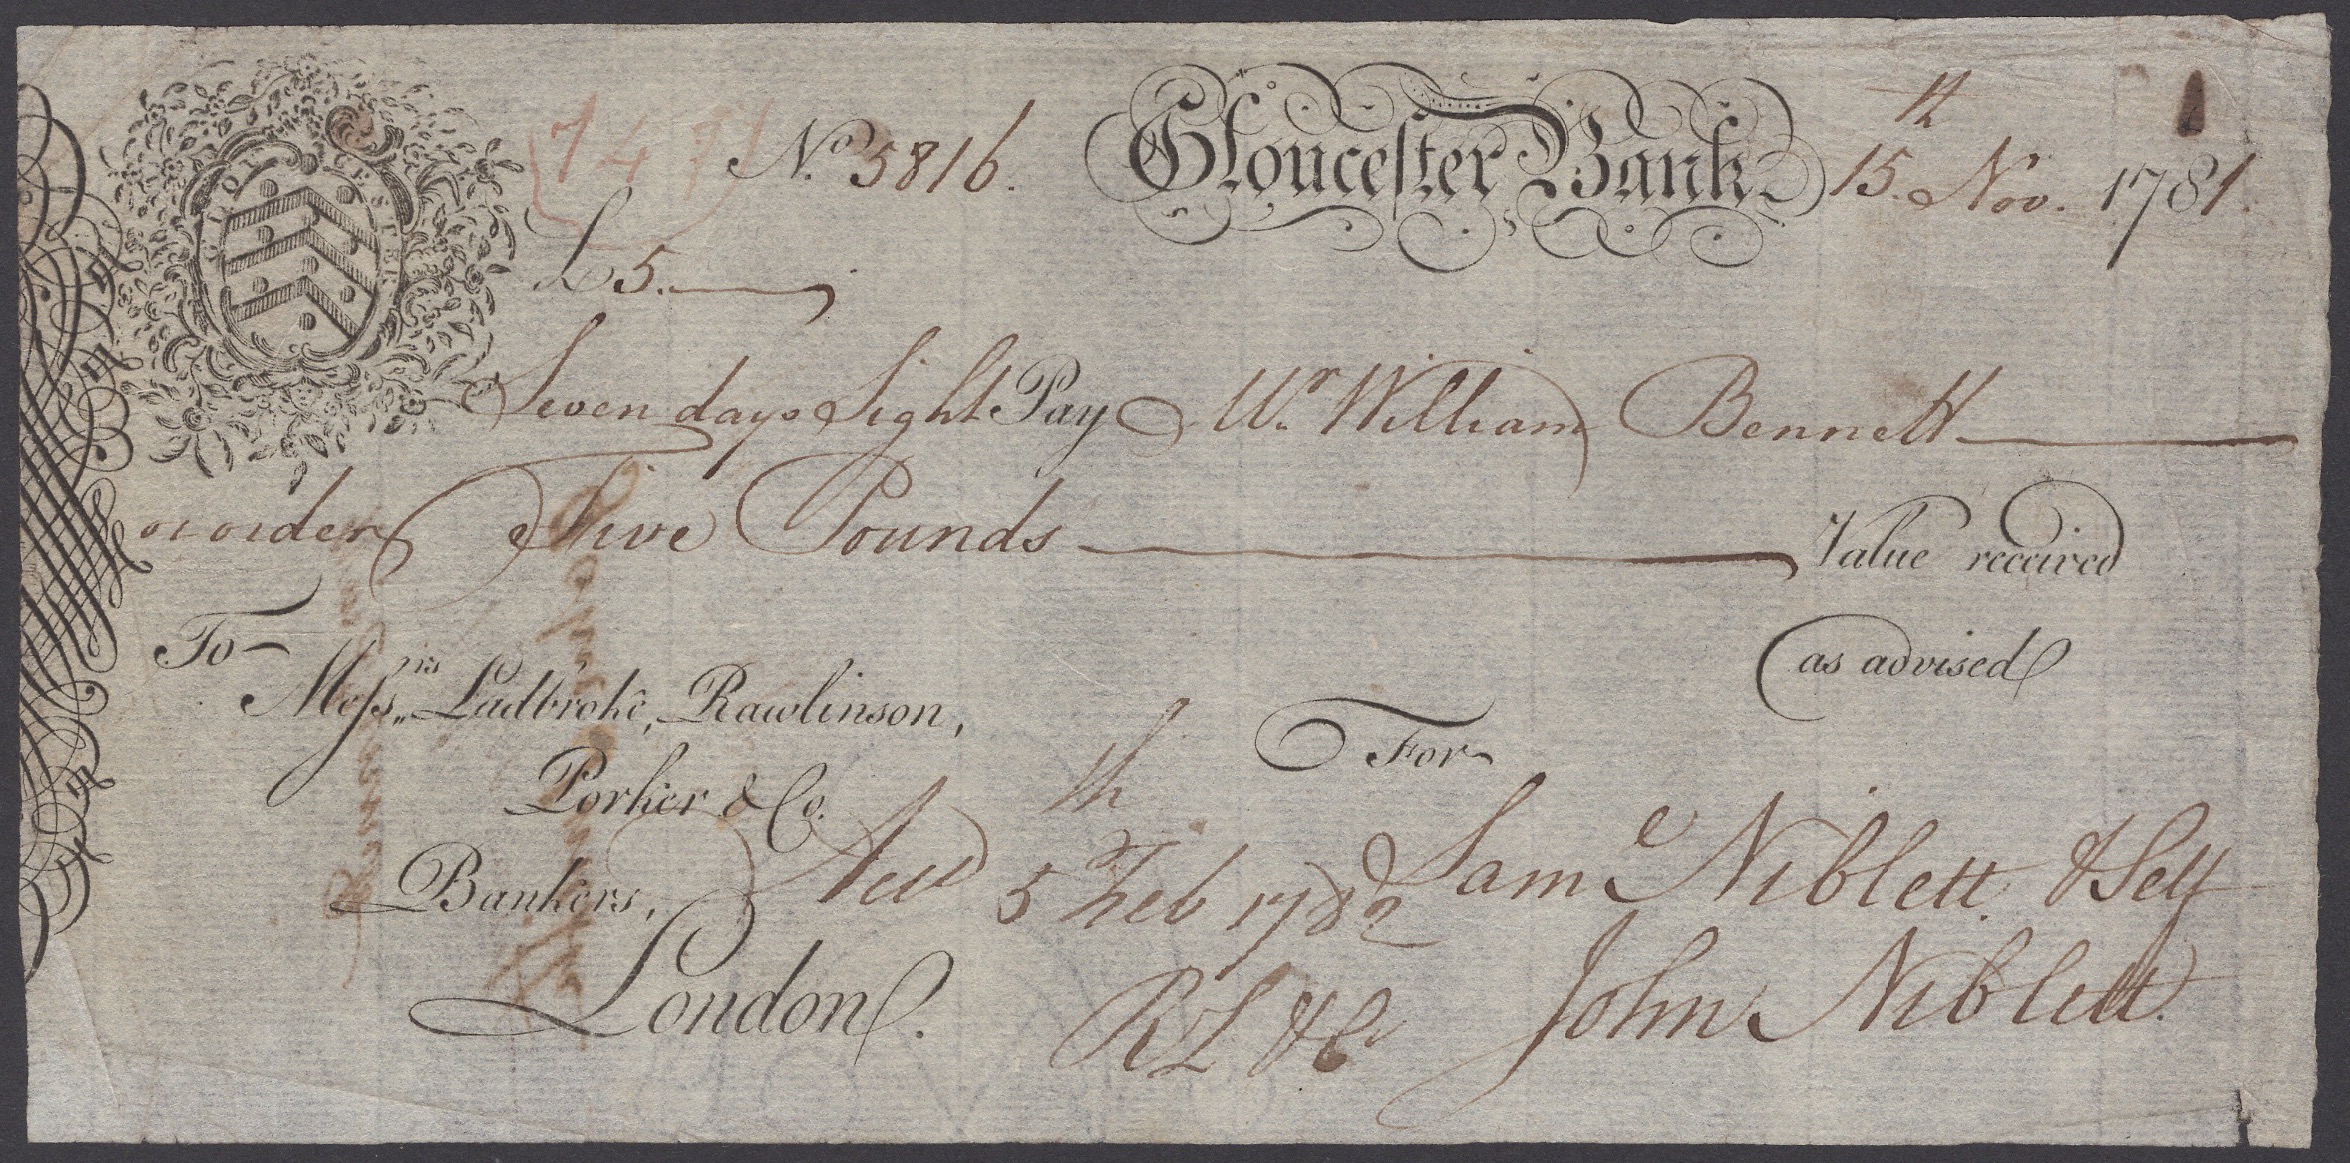 GLOUCESTER
No. 5816. Gloucester Bank 15th Nov. 1781.
£5.
Seven days Sight Pay Mr. William Bennett
or order Five Pounds Value received
as advised
To
Messrs. Ladbroke, Rawlinson,
Porker & Co.
Bankers,
London.
Acc'd 5th Feb 1782
RL & Co
For
Saml Niblett & Self
John Niblett.